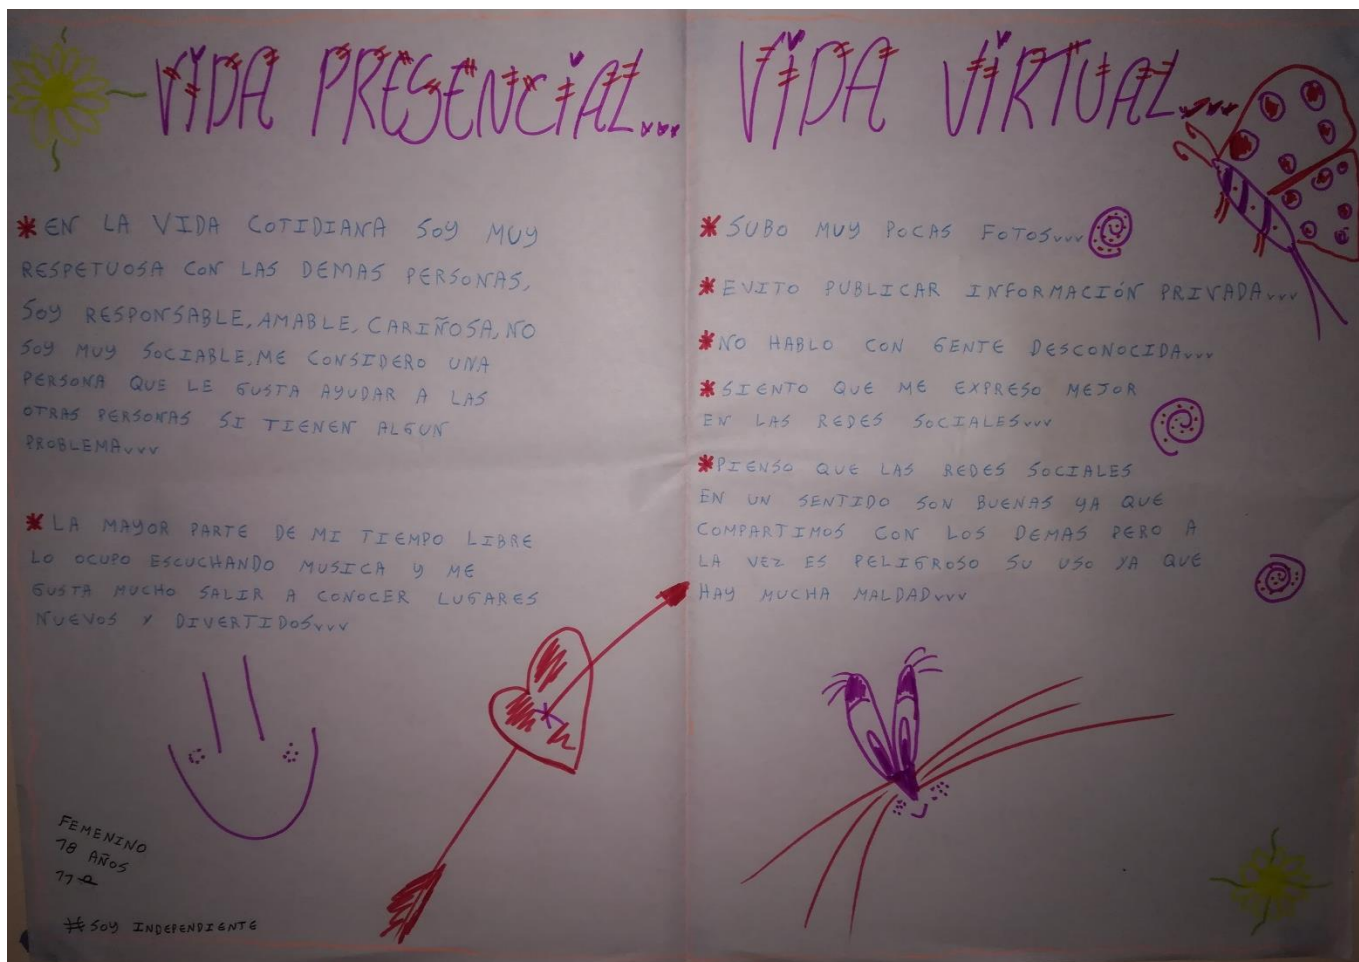 VIDA PRESENCIAL...
* EN LA VIDA COTIDIANA SOY MUY
RESPETUOSA CON LAS DEMAS PERSONAS,
SOY RESPONSABLE, AMABLE, CARIÑOSA, NO
SOY MUY SOCIABLE, ME CONSIDERO UNA
PERSONA QUE LE GUSTA AYUDAR A LAS
OTRAS PERSONAS SI TIENEN ALGUN
PROBLEMA...
* LA MAYOR PARTE DE MI TIEMPO LIBRE
LO OCUPO ESCUCHANDO MUSICA Y ME
GUSTA MUCHO SALIR A CONOCER LUGARES
NUEVOS Y DIVERTIDOS...
FEMENINO
18 AÑOS
#SOY INDEPENDIENTE
VIDA VIRTUAL...
* SUBO MUY POCAS FOTOS...
* EVITO PUBLICAR INFORMACIÓN PRIVADA...
* NO HABLO CON GENTE DESCONOCIDA...
* SIENTO QUE ME EXPRESO MEJOR
EN LAS REDES SOCIALES...
* PIENSO QUE LAS REDES SOCIALES
EN UN SENTIDO SON BUENAS YA QUE
COMPARTIMOS CON LOS DEMAS PERO A
LA VEZ ES PELIGROSO SU USO YA QUE
HAY MUCHA MALDAD...